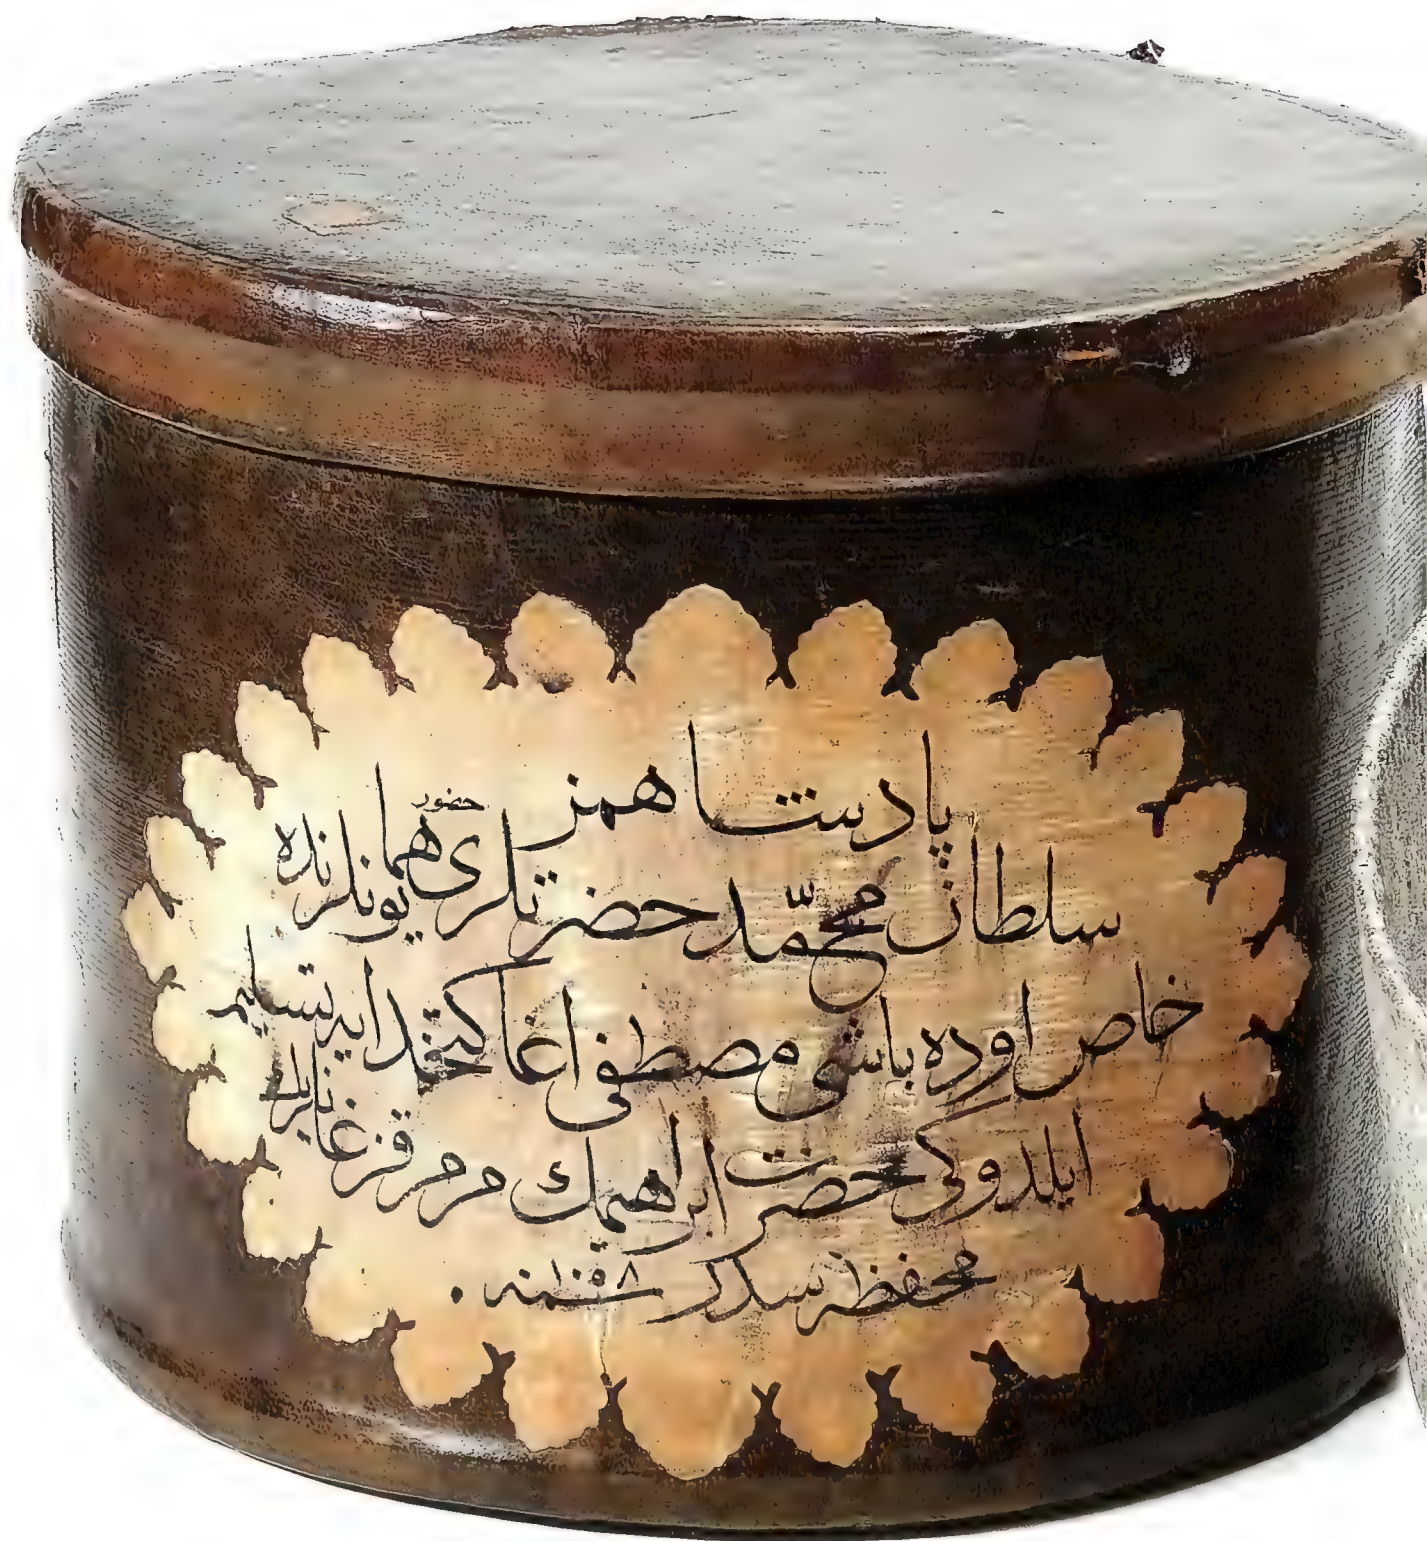 پادشاهمز
سلطان محمّد حضرتلری حضور همايونلرنده
خاص اوده باشی مصطفى اغا كتخدايه تسليم
ايلدوكی حضرت ابراهيمك مرمر قزغانلرينك
محفظه سدر سنه ١٠٥٨